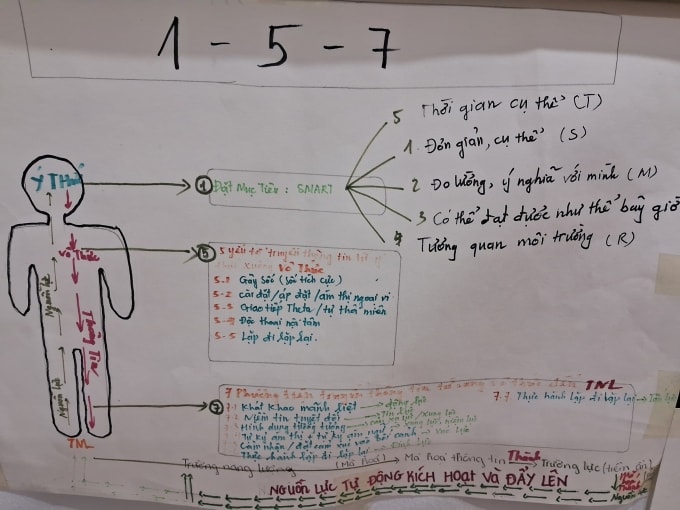 1 - 5 - 7
5 Thời gian cụ thể (T)
1. Đơn giản, cụ thể (S)
2 Đo lường, ý nghĩa với mình (M)
3 Có thể đạt được như thể bây giờ
4 Tương quan môi trường (R)
Ý Thức
1 Đặt Mục Tiêu: SMART
Vô Thức
5 5 yếu tố truyền thông tin từ ý
thức xuống Vô Thức
5-1 Gây Sốc (Sốc tích cực)
5-2 cài đặt/áp đặt/ám thị ngoại vi
5-3 Giao tiếp Theta/tự thôi miên
5-4 Độc thoại nội tâm
5-5 Lặp đi lặp lại.
Nguồn lực
Thông Tin
Nguồn lực
TNL
7 7 Phương tiện truyền thông tin từ xuống vô thức đến TNL
7.1 Khát Khao mãnh liệt → động lực
7.2 Niềm tin tuyệt đối
7.3 Hình dung tưởng tượng
7.7 Thực hành lặp đi lặp lại
Thực hành lặp đi lặp lại
Trường năng lượng (Mã hoá) Mã hoá thông tin Thành Trường lực (tiềm ẩn)
NGUỒN LỰC TỰ ĐỘNG KÍCH HOẠT VÀ ĐẨY LÊN
Thành
Nguồn